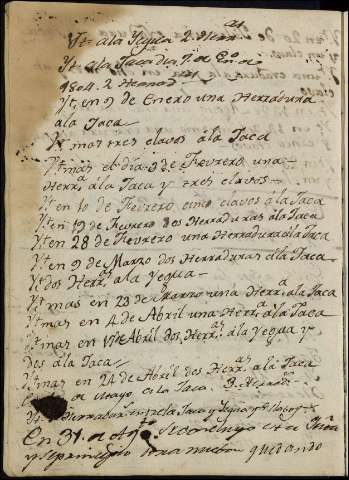 Yt. a la Yegua 2. Herr.as
Yt. a la Jaca dia 9. de En.o de
1804. 2 Herrad.as
Yt, en 9 de Enero una Herradura
ála Jaca
Yt mas tres clavos ála Jaca
Yt mas el dia 9 de Fevrero una
Herr.a ála Jaca y tres clavos
Yt en 10 de Fevrero cinco clavos ála Jaca
Yt en 19 de Fevrero dos Herraduras ála Jaca
Yt en 28 de Fevrero una Herradura ála Jaca
Yt en 9 de Marzo dos Herraduras ála Jaca
Yt dos Herr.as ala Yegua
Yt mas en 23 de Marzo una Herr.a ála Jaca
Yt mas en 4 de Abril una Herr.a ála Jaca
Yt mas en 17 de Abril dos Herr.as ála Yegua y
dos ála Jaca
Yt mas en 24 de Abril dos Herr.as ála Jaca
de Mayo, a la Jaca. 2. Herrad.s
Yt. Herradur Jaca y Yegua
En 31. de se concluyo esta
y se principio otra nueva quedando